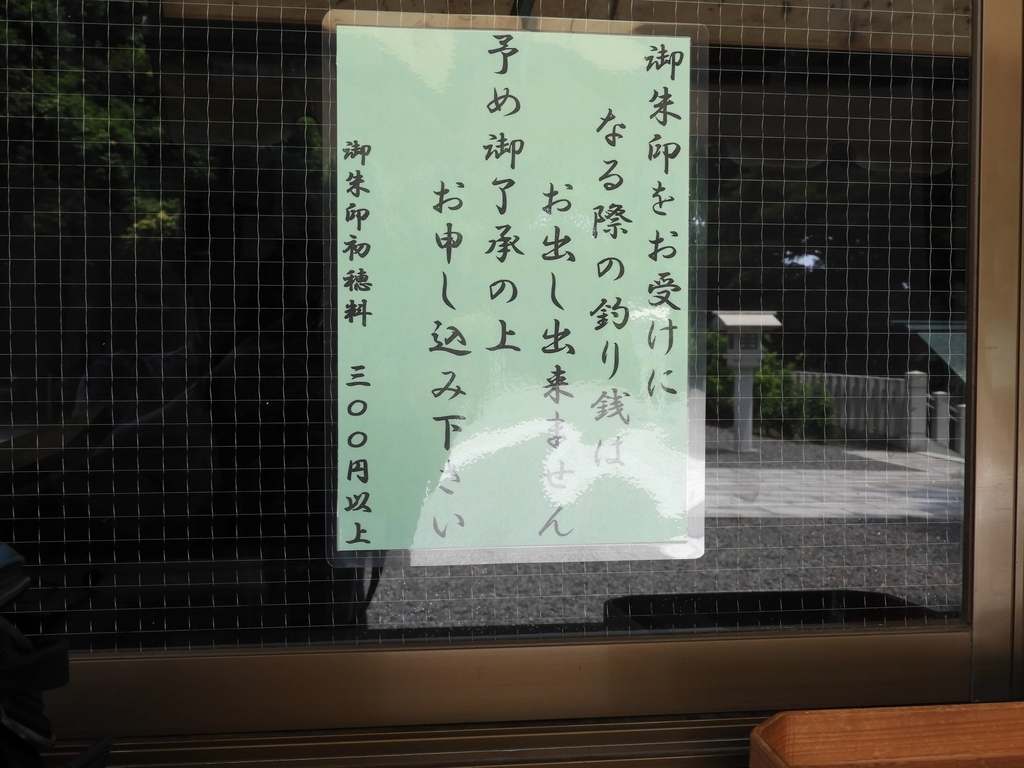 御朱印をお受けに
なる際の釣り銭は
お出し出来ません
予め御了承の上
お申し込み下さい
御朱印初穂料 三〇〇円以上